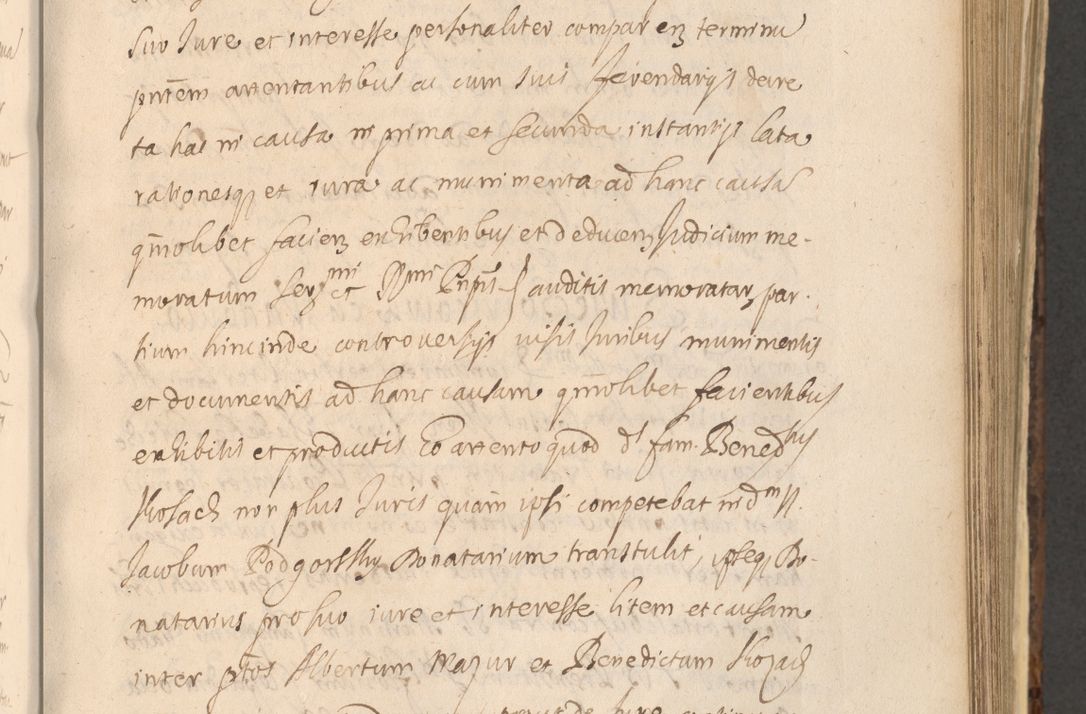 suo Jure et interesse personaliter comparen terminu
pntem attentantibus ac cum suis ferendarijs decre
ta hac in causa in prima et secunda instantijs lata
rationesq et iura ac munimenta ad hanc causa
qmolibet facien exhibentibus et deducen Judicium me-
moratum auditis memoratar par-
tium hincinde controversijs visis Juribus munimentis
et documentis ad hanc causam qmolibet facientibus
exhibitis et productis Eo attento quod ds fam. Benedtus
Kosach non plus Juris quam ipsi competebat in dm N.
Jacobum Podgorsky Donatarium transtulit, ipseq Do-
natarius pro suo iure et interesse litem et causam
inter ptos Albertum Mazur et Benedictam Kozach